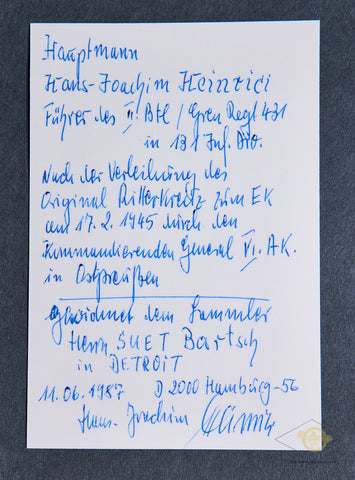 Hauptmann
Hans-Joachim Heinrici
Führer des II. Btl / Gren Regt 431
in 131 Inf. Div.
Nach der Verleihung des
Original Ritterkreuz zum EK
am 17. 2. 1945 durch den
Kommandierenden General VI. AK.
in Ostpreußen
Gewidmet dem Sammler
Herrn Bartsch
in DETROIT
11.06.1987 D 2000 Hamburg-56
Hans-Joachim